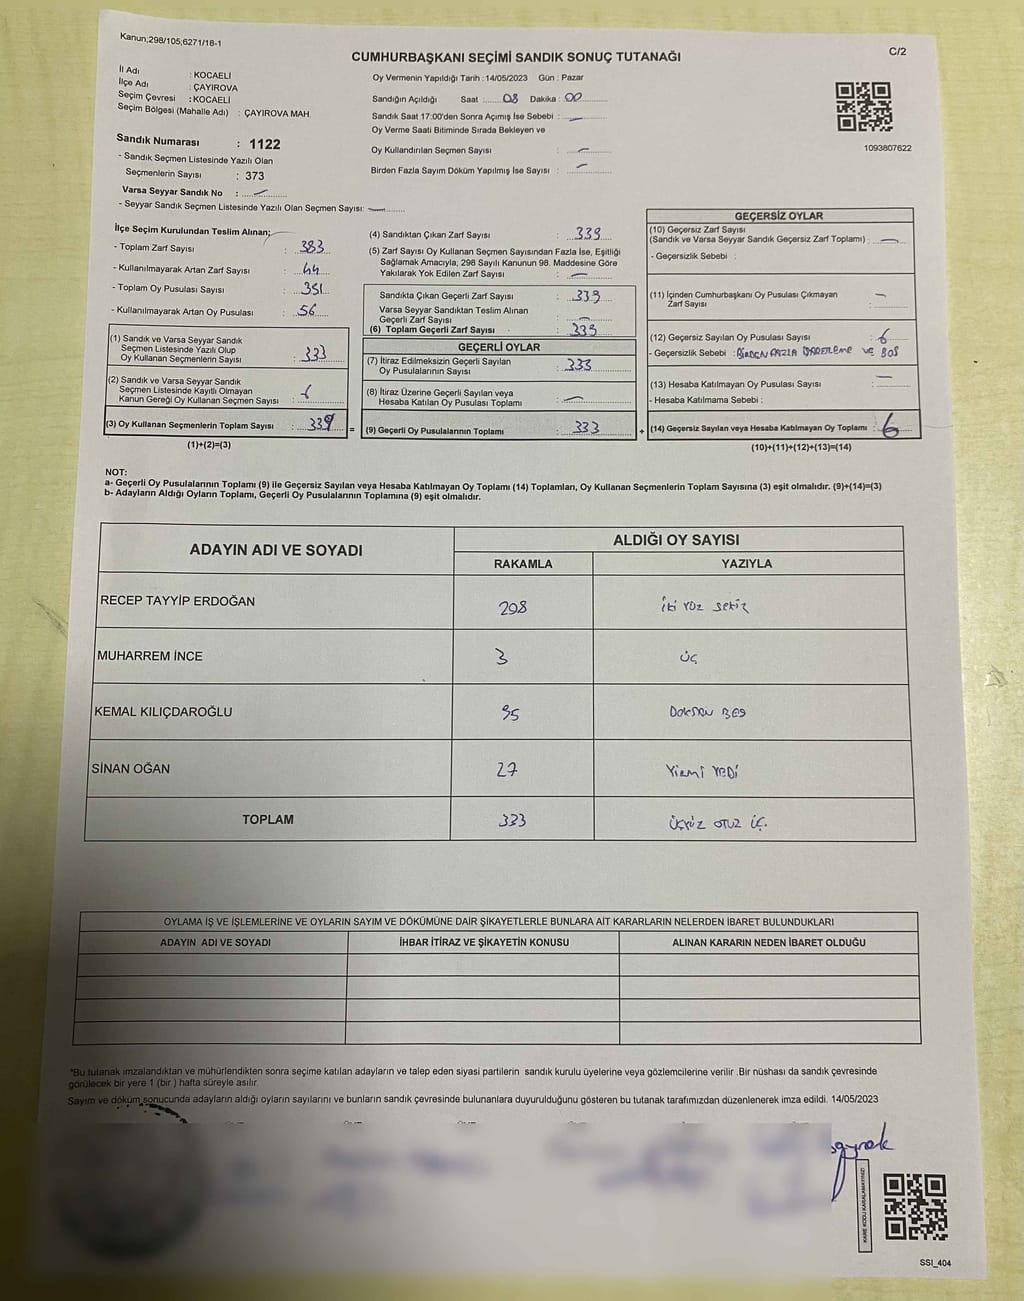 Kanun;298/105,6271/18-1
C/2
CUMHURBAŞKANI SEÇİMİ SANDIK SONUÇ TUTANAĞI
İl Adı : KOCAELİ
İlçe Adı : ÇAYIROVA
Seçim Çevresi : KOCAELİ
Seçim Bölgesi (Mahalle Adı) : ÇAYIROVA MAH.
Sandık Numarası : 1122
- Sandık Seçmen Listesinde Yazılı Olan
Seçmenlerin Sayısı : 373
Varsa Seyyar Sandık No : —
- Seyyar Sandık Seçmen Listesinde Yazılı Olan Seçmen Sayısı: —
Oy Vermenin Yapıldığı Tarih : 14/05/2023 Gün : Pazar
Sandığın Açıldığı Saat 08 Dakika : 00
Sandık Saat 17:00'den Sonra Açımış İse Sebebi : —
Oy Verme Saati Bitiminde Sırada Bekleyen ve
Oy Kullandırılan Seçmen Sayısı : —
Birden Fazla Sayım Döküm Yapılmış İse Sayısı : —
1093807622
İlçe Seçim Kurulundan Teslim Alınan;
- Toplam Zarf Sayısı : 383
- Kullanılmayarak Artan Zarf Sayısı : 44
- Toplam Oy Pusulası Sayısı : 351
- Kullanılmayarak Artan Oy Pusulası : 56
(1) Sandık ve Varsa Seyyar Sandık
Seçmen Listesinde Yazılı Olup
Oy Kullanan Seçmenlerin Sayısı : 333
(2) Sandık ve Varsa Seyyar Sandık
Seçmen Listesinde Kayıtlı Olmayan
Kanun Gereği Oy Kullanan Seçmen Sayısı : 6
(3) Oy Kullanan Seçmenlerin Toplam Sayısı : 339 =
(1)+(2)=(3)
(4) Sandıktan Çıkan Zarf Sayısı : 339
(5) Zarf Sayısı Oy Kullanan Seçmen Sayısından Fazla İse, Eşitliği
Sağlamak Amacıyla, 298 Sayılı Kanunun 98. Maddesine Göre
Yakılarak Yok Edilen Zarf Sayısı : —
Sandıkta Çıkan Geçerli Zarf Sayısı : 339
Varsa Seyyar Sandıktan Teslim Alınan
Geçerli Zarf Sayısı : —
(6) Toplam Geçerli Zarf Sayısı : 339
GEÇERLİ OYLAR
(7) İtiraz Edilmeksizin Geçerli Sayılan
Oy Pusulalarının Sayısı : 333
(8) İtiraz Üzerine Geçerli Sayılan veya
Hesaba Katılan Oy Pusulası Toplamı : —
(9) Geçerli Oy Pusulalarının Toplamı : 333 +
GEÇERSİZ OYLAR
(10) Geçersiz Zarf Sayısı
(Sandık ve Varsa Seyyar Sandık Geçersiz Zarf Toplamı) : —
- Geçersizlik Sebebi :
(11) İçinden Cumhurbaşkanı Oy Pusulası Çıkmayan
Zarf Sayısı : —
(12) Geçersiz Sayılan Oy Pusulası Sayısı : 6
- Geçersizlik Sebebi : BİRDEN FAZLA VE BOŞ
(13) Hesaba Katılmayan Oy Pusulası Sayısı : —
- Hesaba Katılmama Sebebi :
(14) Geçersiz Sayılan veya Hesaba Katılmayan Oy Toplamı : 6
(10)+(11)+(12)+(13)=(14)
NOT:
a- Geçerli Oy Pusulalarının Toplamı (9) ile Geçersiz Sayılan veya Hesaba Katılmayan Oy Toplamı (14) Toplamları, Oy Kullanan Seçmenlerin Toplam Sayısına (3) eşit olmalıdır. (9)+(14)=(3)
b- Adayların Aldığı Oyların Toplamı, Geçerli Oy Pusulalarının Toplamına (9) eşit olmalıdır.
ADAYIN ADI VE SOYADI
ALDIĞI OY SAYISI
RAKAMLA YAZIYLA
RECEP TAYYİP ERDOĞAN 208 iki yüz sekiz
MUHARREM İNCE 3 üç
KEMAL KILIÇDAROĞLU 95 Doksan BEŞ
SİNAN OĞAN 27 Yirmi YEDİ
TOPLAM 333 ÜÇYÜZ OTUZ ÜÇ.
OYLAMA İŞ VE İŞLEMLERİNE VE OYLARIN SAYIM VE DÖKÜMÜNE DAİR ŞİKAYETLERLE BUNLARA AİT KARARLARIN NELERDEN İBARET BULUNDUKLARI
ADAYIN ADI VE SOYADI İHBAR İTİRAZ VE ŞİKAYETİN KONUSU ALINAN KARARIN NEDEN İBARET OLDUĞU
*Bu tutanak imzalandıktan ve mühürlendikten sonra seçime katılan adayların ve talep eden siyasi partilerin sandık kurulu üyelerine veya gözlemcilerine verilir .Bir nüshası da sandık çevresinde
görülecek bir yere 1 (bir ) hafta süreyle asılır.
Sayım ve döküm sonucunda adayların aldığı oyların sayılarını ve bunların sandık çevresinde bulunanlara duyurulduğunu gösteren bu tutanak tarafımızdan düzenlenerek imza edildi. 14/05/2023
KARE KODU KARALAMAYINIZ!
SSI_404